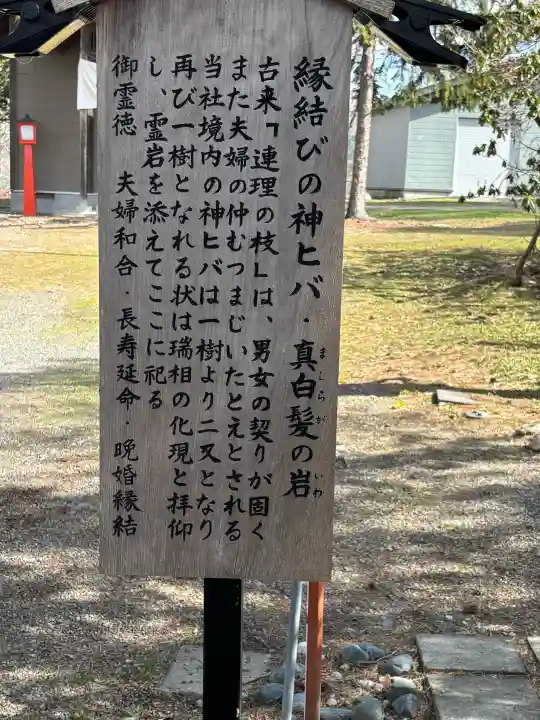 縁結びの神ヒバ・真白髪の岩
ましらが
いわ
古来「連理の枝」は、男女の契りが固く
また夫婦の仲むつまじいたとえとされる
当社境内の神ヒバは一樹より二又となり
再び一樹となれる状は瑞相の化現と拝仰
し、霊岩を添えてここに祀る
御霊徳 夫婦和合・長寿延命・晩婚縁結